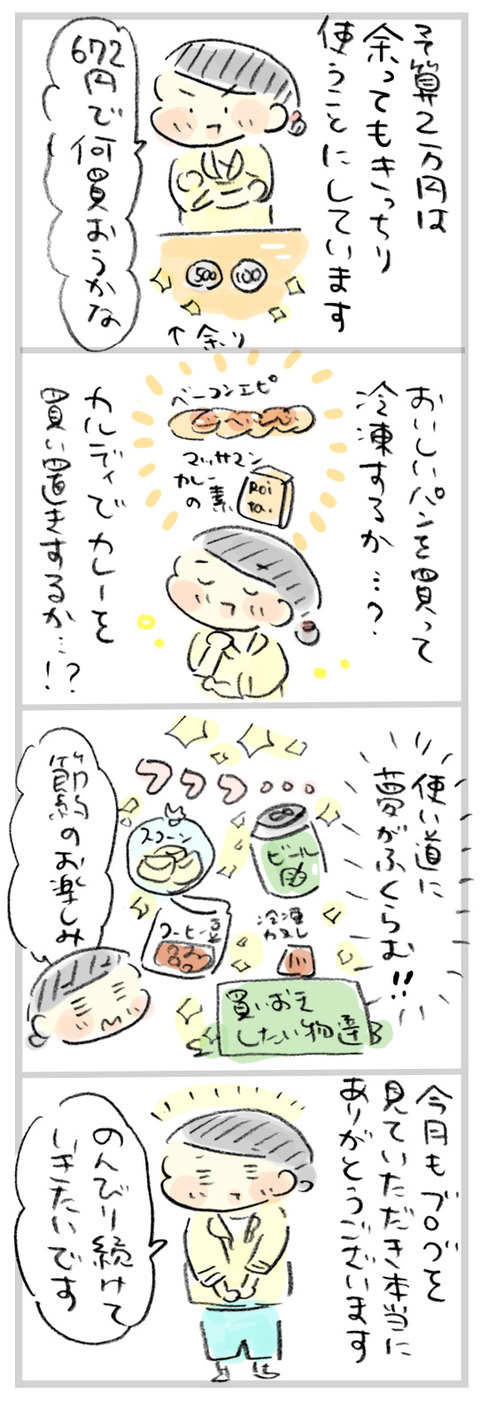 予算2万円は
余ってもきっちり
使うことにしています
672
円で何買おうかな
500
100
↑余り
おいしいパンを買って
冷凍するか…?
ベーコンエピ
マッサマン
カレー
の素
Roi
tai
カルディでカレーを
買い置きするか…!?
使い道に
夢がふくらむ!!
フフフ…
スコーン
ビール
コーヒー豆
冷凍
カヌレ
買いおき
したい物達
節約のお楽しみ
今月もブログを
見ていただき本当に
ありがとうございます
のんびり続けて
いきたいです